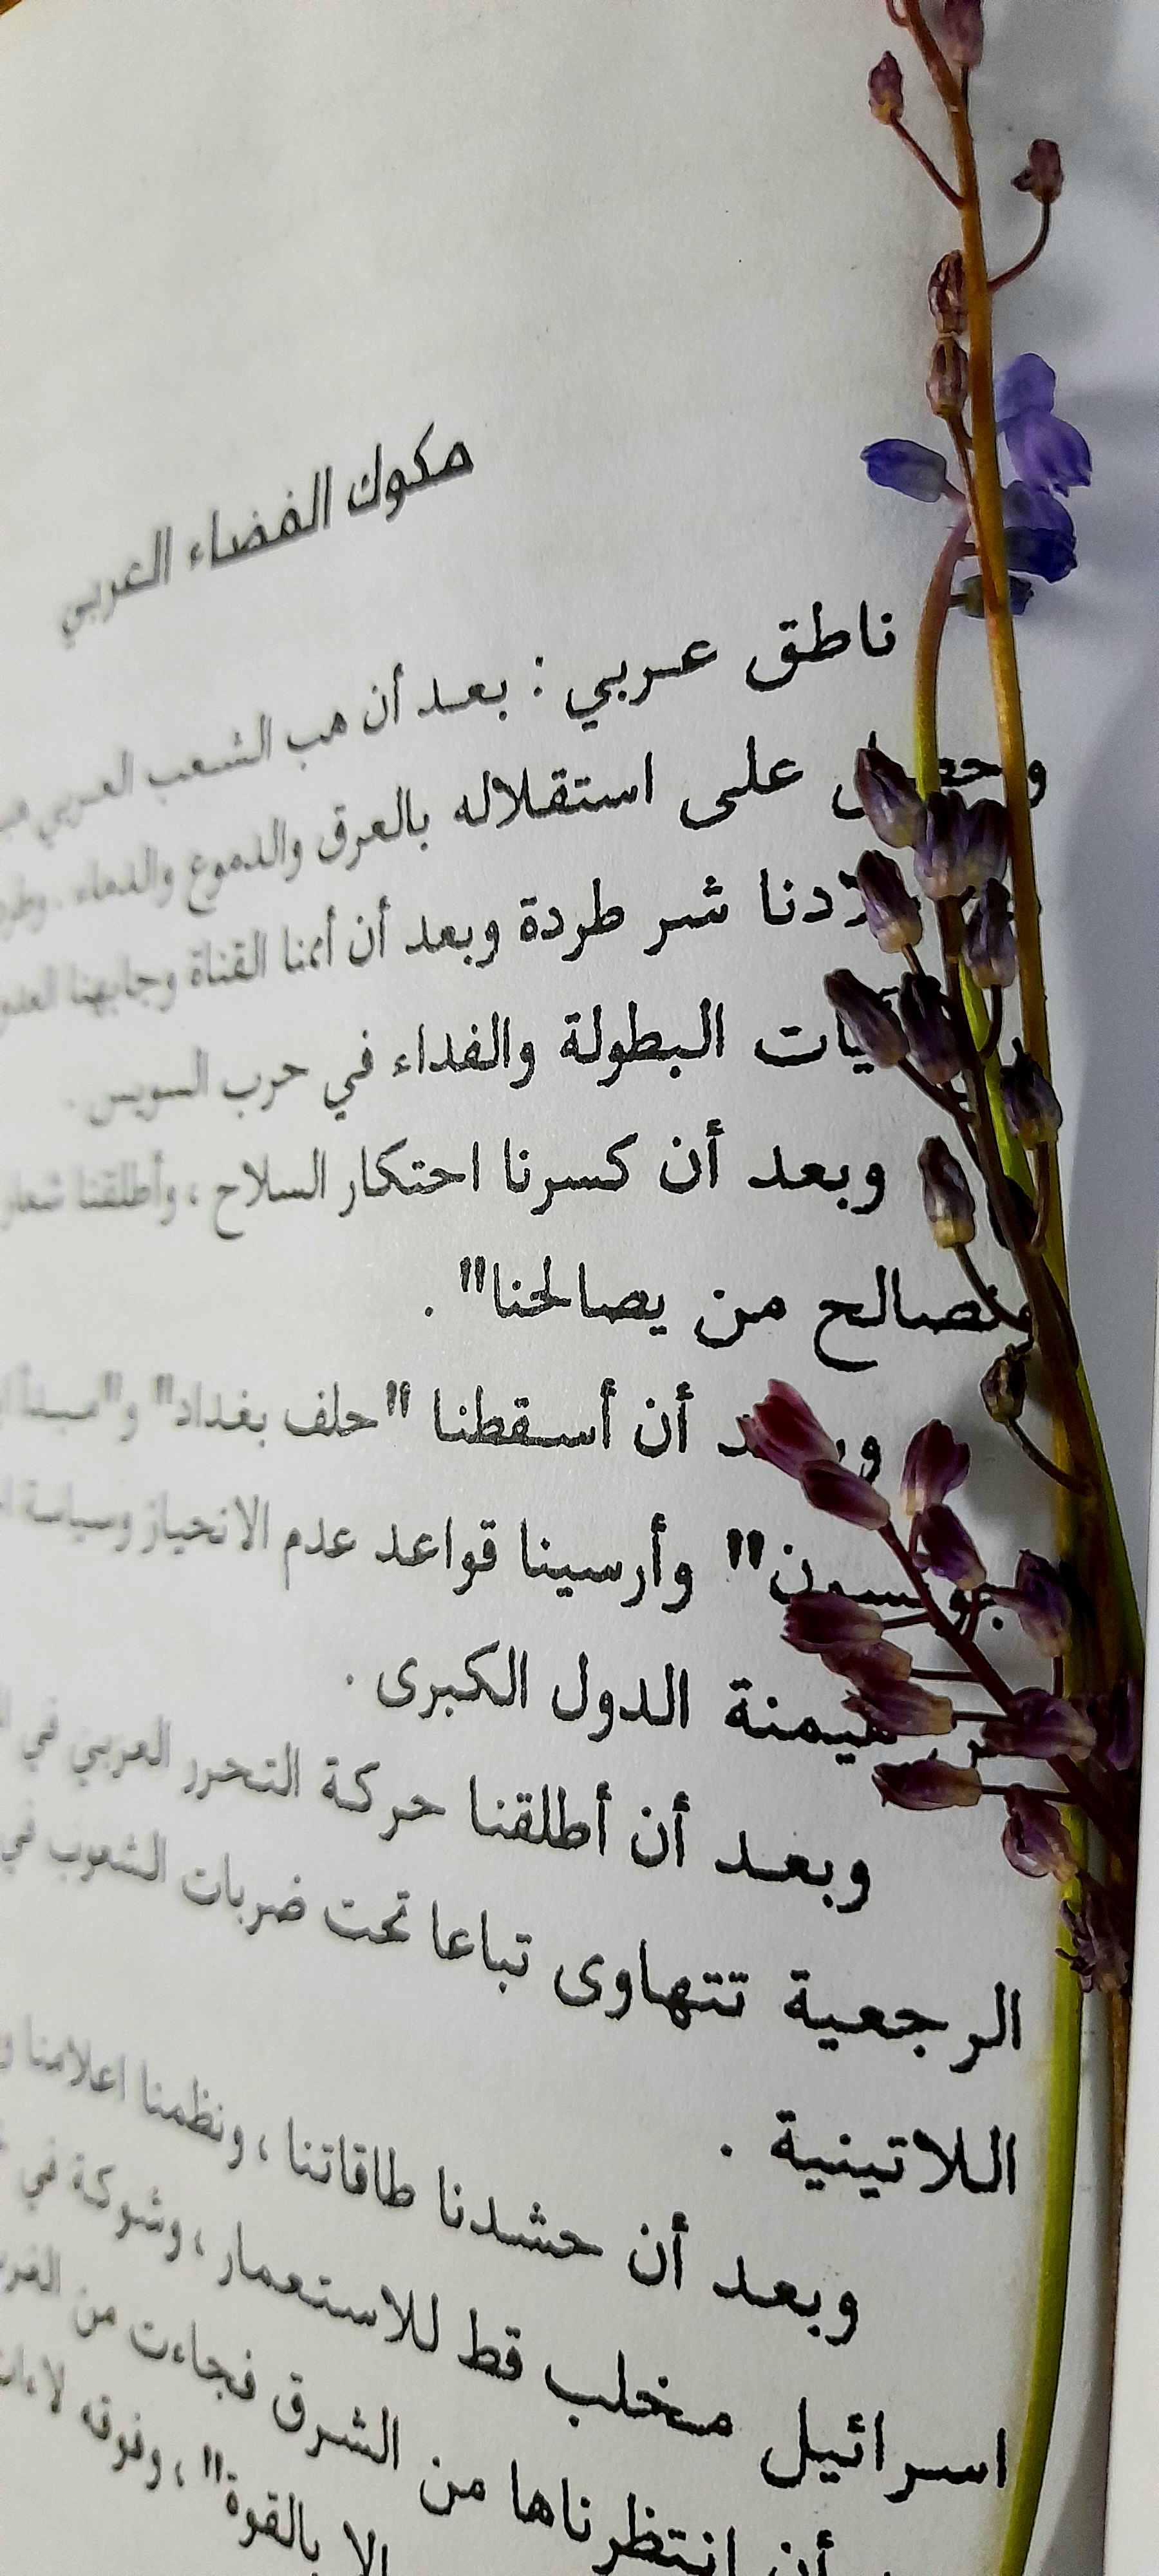 مكوك الفضاء العربي
ناطق عربي : بعد أن هب الشعب العربي
على استقلاله بالعرق والدموع والدماء .
شر طردة وبعد أن أممنا القناة وجابهنا
البطولة والفداء في حرب السويس .
وبعد أن كسرنا احتكار السلاح ، وأطلقنا
من يصالحنا" .
أن أسقطنا "حلف بغداد"
وأرسينا قواعد عدم الانحياز وسياسة
الدول الكبرى .
وبعد أن أطلقنا حركة التحرر العربي في
الرجعية تتهاوى تباعا تحت ضربات الشعوب في
اللاتينية .
وبعد أن حشدنا طاقاتنا ، ونظمنا اعلامنا
اسرائيل مخلب قط للاستعمار ، وشوكة في
أن انتظرناها من الشرق فجاءت من
الا بالقوة" ، وفوقه